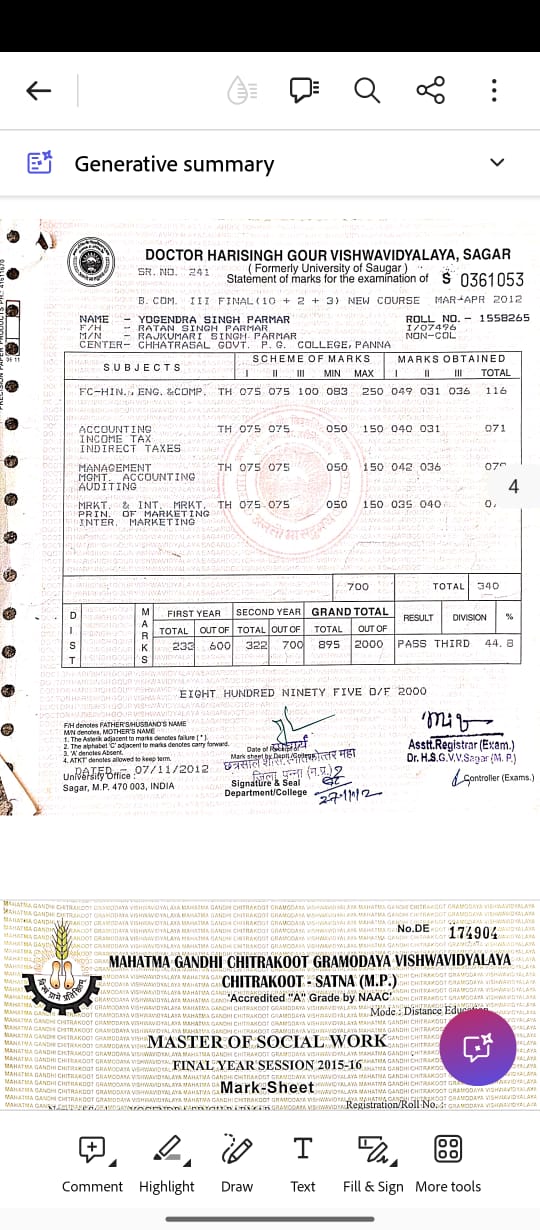 Generative summary
DOCTOR HARISINGH GOUR VISHWAVIDYALAYA, SAGAR
(Formerly University of Saugar)
SR. NO. 241
Statement of marks for the examination of S 0361053
B. COM. III FINAL (10 + 2 + 3) NEW COURSE MAR-APR 2012
NAME - YOGENDRA SINGH PARMAR ROLL NO. - 1558265
F/H - RATAN SINGH PARMAR I/07496
M/N - RAJKUMARI SINGH PARMAR NON-COL
CENTER- CHHATRASAL GOVT. P. G. COLLEGE, PANNA
SUBJECTS SCHEME OF MARKS MARKS OBTAINED
I II III MIN MAX I II III TOTAL
FC-HIN., ENG. &COMP. TH 075 075 100 083 250 049 031 036 116
ACCOUNTING TH 075 075 050 150 040 031 071
INCOME TAX
INDIRECT TAXES
MANAGEMENT TH 075 075 050 150 042 036
MGMT. ACCOUNTING
AUDITING
4
MRKT. & INT. MRKT. TH 075 075 050 150 035 040
PRIN. OF MARKETING
INTER. MARKETING
700 TOTAL 340
DIST MARKS FIRST YEAR SECOND YEAR GRAND TOTAL RESULT DIVISION %
TOTAL OUT OF TOTAL OUT OF TOTAL OUT OF
233 600 322 700 895 2000 PASS THIRD 44.8
EIGHT HUNDRED NINETY FIVE O/F 2000
F/H denotes FATHER'S/HUSBAND'S NAME
M/N denotes, MOTHER'S NAME
1. The Asterik adjacent to marks denotes failure (*).
2. The alphabet 'C' adjacent to marks denotes carry forward.
3. 'A' denotes Absent.
4. ATKT' denotes allowed to keep term.
DATED - 07/11/2012
University Office :
Sagar, M.P. 470 003, INDIA
Date of Receipt of
Mark sheet by Deptt./College
जिला पन्ना (म.प्र.)
Signature & Seal
Department/College
Asstt.Registrar (Exam.)
Dr. H.S.G.V.V.Sagar (M. P.)
Controller (Exams.)
No.DE 174904
MAHATMA GANDHI CHITRAKOOT GRAMODAYA VISHWAVIDYALAYA
CHITRAKOOT - SATNA (M.P.)
'Accredited "A" Grade by NAAC'
Mode : Distance Education
MASTER OF SOCIAL WORK
FINAL YEAR SESSION 2015-16
Mark-Sheet
Registration/Roll No. :
Comment Highlight Draw Text Fill & Sign More tools